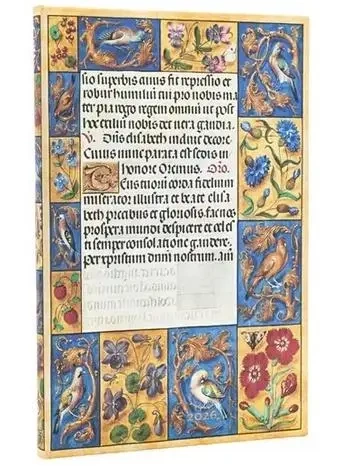 sio superbis aiiuis fit repressio et
robur humiliū cui pio nobis ma
ter pia rogo regem omniū ut post
hoc exiliū nobis det uera gaudia.
V. Diīs elisabeth induit decore
Cuius nunc parata est sedis in
honore Oremus. Oro.
eus tuorū corda fidelium
miserator illustra et beate elisa
beth precibus et gloriosis, facnos
prospera mundi despicere et celes
ti semper consolatione gaudere,
per xpristum dnm nostrum. am
2026